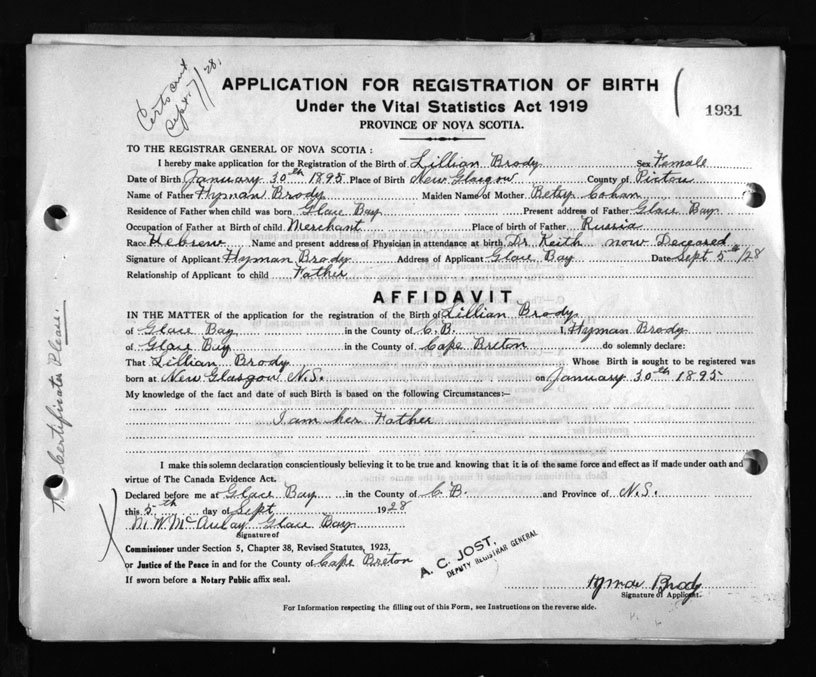 Certs sent
Sept. 7/28.
APPLICATION FOR REGISTRATION OF BIRTH
1931
Under the Vital Statistics Act 1919
PROVINCE OF NOVA SCOTIA.
TO THE REGISTRAR GENERAL OF NOVA SCOTIA:
I hereby make application for the Registration of the Birth of Lillian Brody Sex Female
Date of Birth January 30th 1895 Place of Birth New Glasgow County of Pictou
Name of Father Hyman Brody Maiden Name of Mother Betsy Cohan
Residence of Father when child was born Glace Bay Present address of Father Glace Bay
Occupation of Father at Birth of child Merchant Place of birth of Father Russia
Race Hebrew Name and present address of Physician in attendance at birth Dr. Keith now Deceased
Signature of Applicant Hyman Brody Address of Applicant Glace Bay Date Sept 5th/28
Relationship of Applicant to child Father
AFFIDAVIT
IN THE MATTER of the application for the registration of the Birth of Lillian Brody
of Glace Bay in the County of C.B. I, Hyman Brody
of Glace Bay in the County of Cape Breton do solemnly declare:
That Lillian Brody Whose Birth is sought to be registered was
born at New Glasgow N.S. on January 30th 1895
My knowledge of the fact and date of such Birth is based on the following Circumstances:—
I am her Father
I make this solemn declaration conscientiously believing it to be true and knowing that it is of the same force and effect as if made under oath and
virtue of The Canada Evidence Act.
Declared before me at Glace Bay in the County of C.B. and Province of N.S.
this 5th day of Sept 1928
M. W. McAulay Glace Bay
Signature of
Commissioner under Section 5, Chapter 38, Revised Statutes, 1923,
or Justice of the Peace in and for the County of Cape Breton
If sworn before a Notary Public affix seal.
A. C. JOST,
DEPUTY REGISTRAR GENERAL
Hyman Brody
Signature of Applicant.
For Information respecting the filling out of this Form, see Instructions on the reverse side.
Certificates Please.